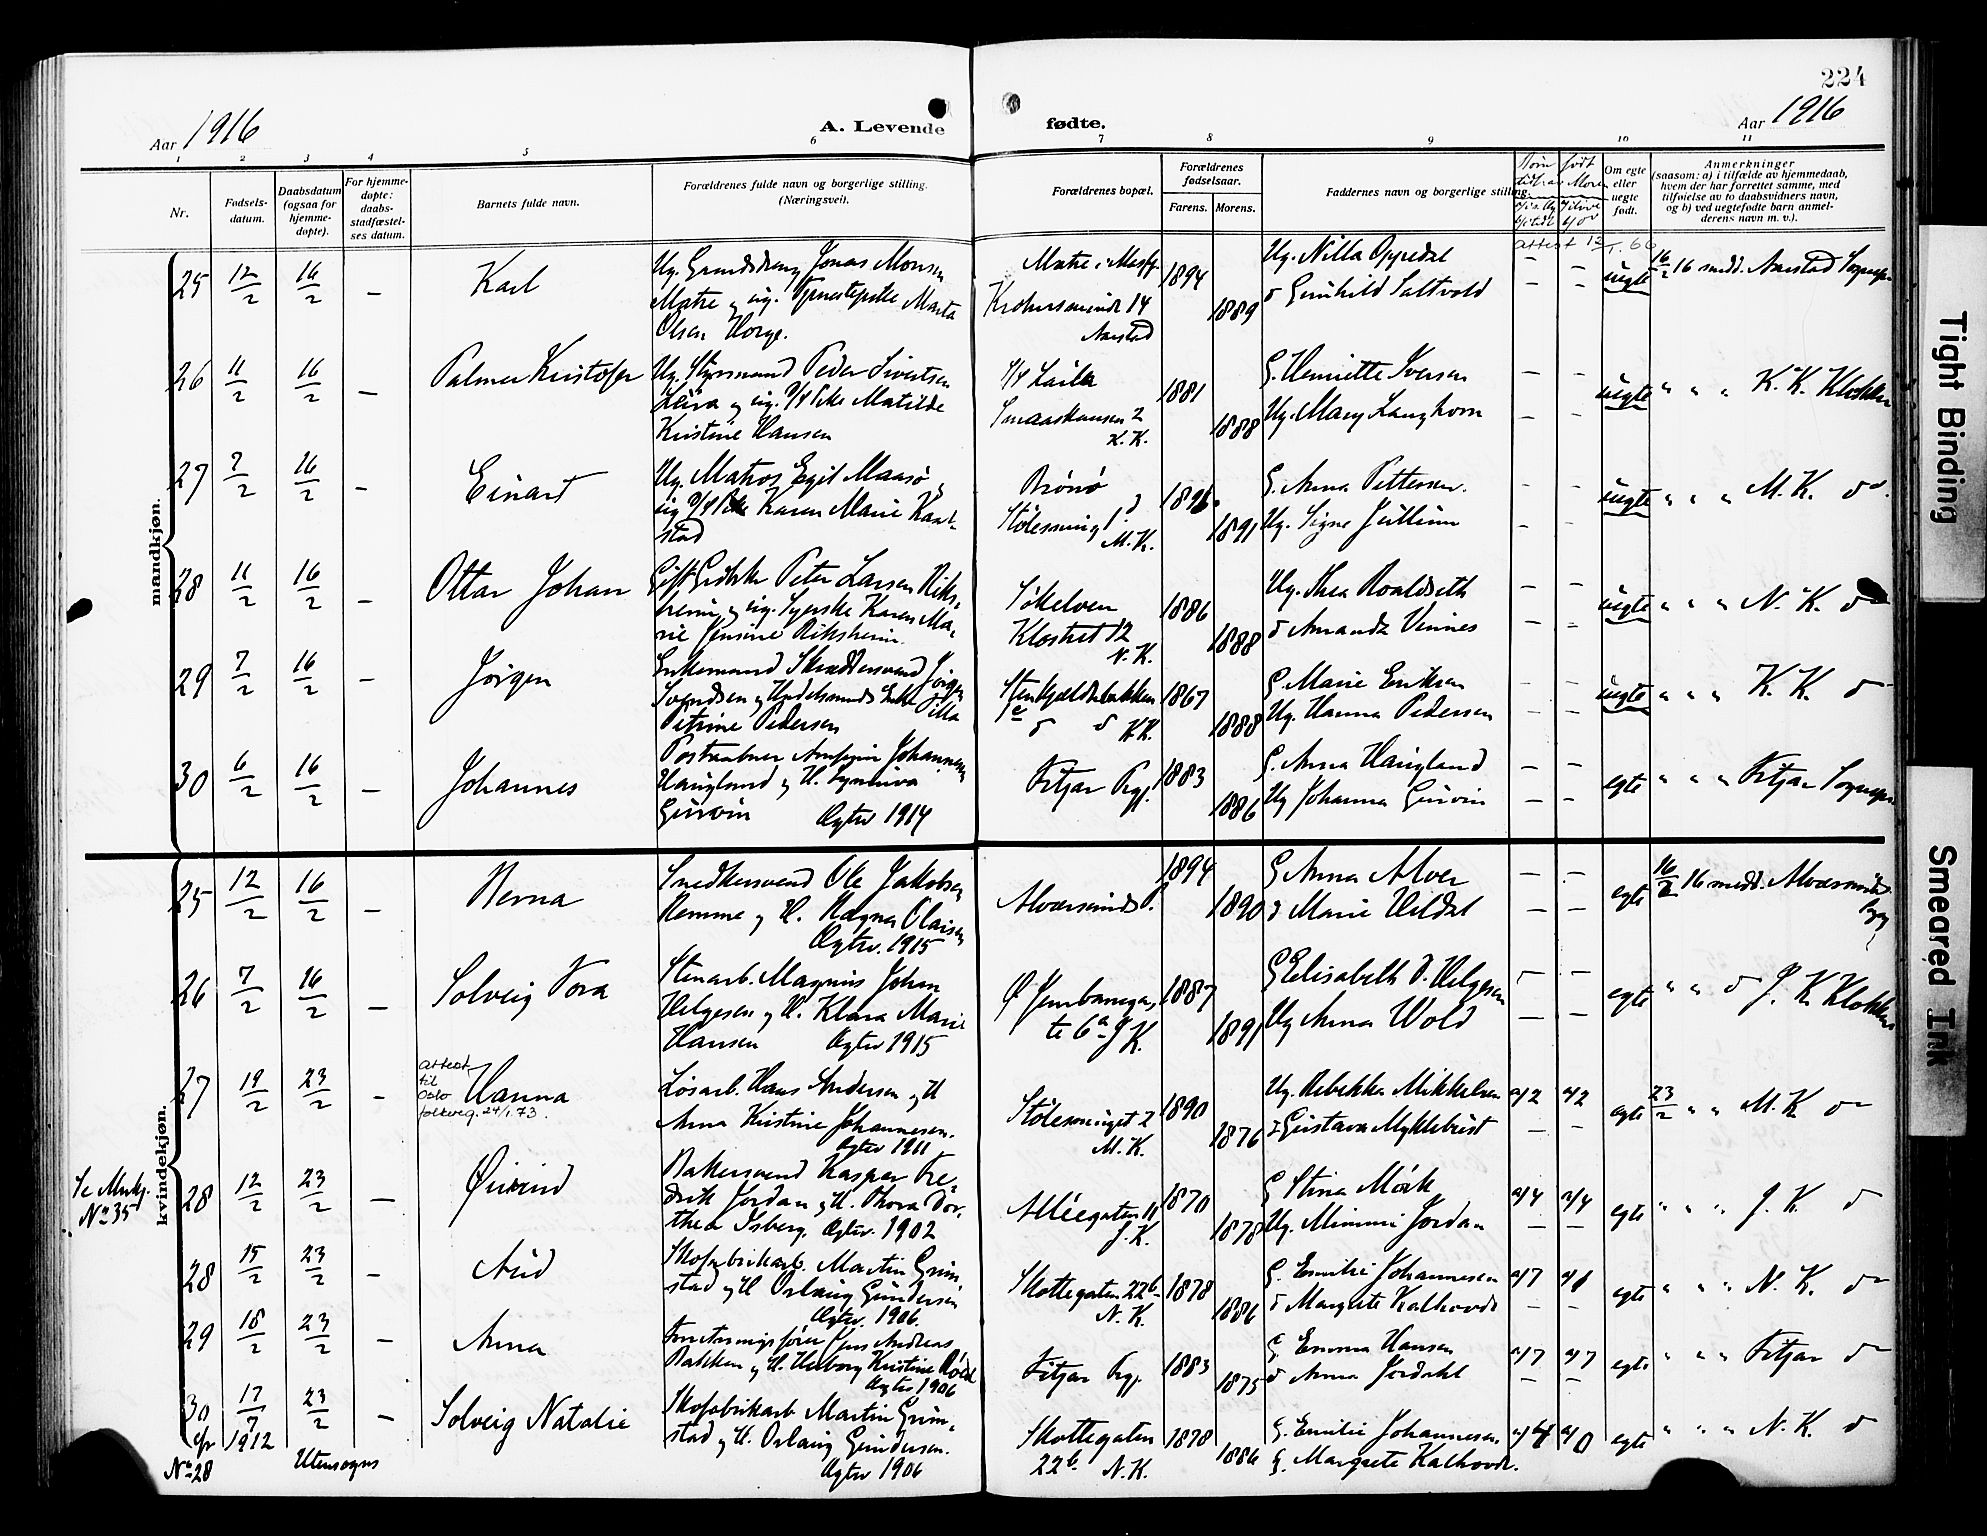 224
Aar 1916
A. Levende fødte.
Aar 1916
1 2 3 4 5 6 7 8 9 10 11
Nr.
Fødsels-
datum.
Daabsdatum
(ogsaa for
hjemme-
døpte).
For hjemme-
døpte:
daabs-
stadfæstel-
ses datum.
Barnets fulde navn.
Forældrenes fulde navn og borgerlige stilling.
(Næringsvei).
Forældrenes bopæl.
Forældrenes
fødselsaar.
Farens. Morens.
Faddernes navn og borgerlige stilling.
Om egte
eller
uegte
født.
Anmerkninger
(saasom: a) i tilfælde av hjemmedaab,
hvem der har forrettet samme, med
tilføielse av to daabsvidners navn,
og b) ved uegtefødte barn anmel-
derens navn m. v.).
mandkjøn.
25 12/2 16/2 — Karl
Ug. Gaardsdreng Jonas Monsen
Matre og ug. Tjenestepike Marta
Olsen Horge.
Matre i Masfj.
14
Aarstad
1894
1889
Ug. Nilla Oppedal
Gunhild Saltvold
uegte
16/2 16 medd. Aarstad Sognepr
26 11/2 16/2 — Palmer Kristofer
Ug. Styrmand Peder Sivertsen
Leira og ug. Pike Matilde
Kristine Hansen
Laila
Smaaskansen 2
K. K.
1881
1888
G. Henriette Iversen
Ug. Mary Langhorn
uegte
" " " K. K. Klokker
27 7/2 16/2 — Einart
Ug. Matros Egil Maasø og
ug Pike Karen Marie Kaar-
stad
Brønø
Stølesmug
M. K.
1891
G. Anna Pettersen.
Ug. Signe Jullum
uegte
" " " M. K. do
28 11/2 16/2 — Ottar Johan
Gift Peter Larsen Riks-
heim og ug. Syerske Karen Ma-
rie Jensine Riksheim.
Søkelven
Klostret 12
N. K.
1886
1888
Ug. Thea Roaldseth
do Amanda Vinnes
uegte
" " " N. K. do
29 7/2 16/2 — Jørgen
Enkemand Skræddersvend Jørgen
Svendsen og Enke Milla
Petrine Pedersen
Stenkjelderbakken
K.K.
1867
1888
G Marie Eriksen
Ug. Hanna Pedersen
uegte
" " " K. K. do
30 6/2 16/2 — Johannes
Postaabner Johannessen
Hauglund og H. Synneva
Gurvin Egtev 1914
Fitjar Pgj.
1883
1886
G. Anna Hauglund
Ug Johanna Gurvin
egte
" " " Fitjar Sognepr
kvindekjøn.
25 12/2 16/2 — Nerna
Snedkersvend Ole Jakobsen
Remme og H. Ragna Olaisen
Egtev. 1915
Alversund P.
1894
1890
G Anna Alver
do Marie Heldal
egte
16/2 16 medd. Alversunds
Sogn
26 7/2 16/2 — Solveig Tora
Stenarb. Magnus Johan
Helgesen og H. Klara Marie
Hansen Egtev 1915
Ø Jernbanega-
te 6a J K.
1887
1891
G Elisabeth D. Helgesen
Ug Anna Wold
egte
" " do J. K Klokker
27 19/2 23/2 — Hanna
Attest
til
Oslo
folkereg. 24/1.73.
Løsarb. Hans Andersen og H
Anna Kristine Johannesen.
Egtev 1911
Stølesmuget 2
M. K.
1890
1876
Ug. Rebekka Mikkelsen
Gustava Myklebust
egte
23/2 " " M. K do
Se Mnkj.
No 35
28 12/2 23/2 — Øivind
Bakersvend Kaspar Fre-
drik Jordan og H. Thora Dor-
thea Isberg. Egtev. 1902
Alléegaten 11
J. K.
1870
1878
G Stina Mørk
Ug. Mimmi Jordan
egte
" " " J. K do
28 15/2 23/2 — Aud
Skofabrikarb. Martin Grim-
stad og H Oslaug Gundersen
Egtev. 1906.
Skottegaten 22b
N. K.
1878
1886
G. Emilie Johannesen
do Margrete Kalhovde
egte
" " " N. K. do
29 18/2 23/2 — Anna
Forretningsfører Jens Andreas
Bakken og H. Herborg Kristine
Egtev 1906
Fitjar Pgj.
1883
1875
G. Emma Hansen
do Anna Jordahl
egte
" " " Fitjar do
30 17/7 1912 23/2 — Solveig Natalie
No 28
Utensogns
Skofabrikarb Martin Grim-
stad og H. Oslaug Gundersen.
Egtev 1906
Skottegaten
22b. N. K.
1878
1886
G. Emilie Johannesen
G. Margrete Kalhovde.
egte
" " " N. K. do
Tight Binding
Smeared Ink